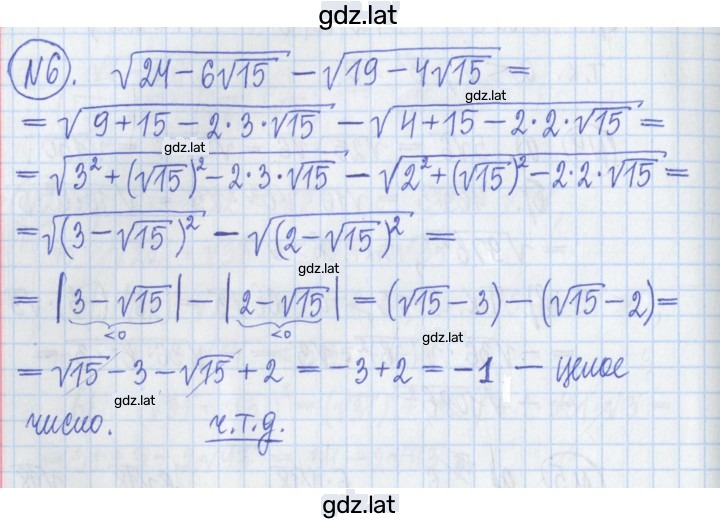 gdz.lat
№6. √(24 − 6√15) − √(19 − 4√15) =
gdz.lat
= √(9 + 15 − 2·3·√15) − √(4 + 15 − 2·2·√15) =
gdz.lat
= √(3² + (√15)² − 2·3·√15) − √(2² + (√15)² − 2·2·√15) =
= √((3 − √15)²) − √((2 − √15)²) =
= |3 − √15| − |2 − √15| = (√15 − 3) − (√15 − 2) =
<0 <0
gdz.lat
= √15 − 3 − √15 + 2 = −3 + 2 = −1 — целое
gdz.lat
число. ч.т.д.
gdz.lat
gdz.lat